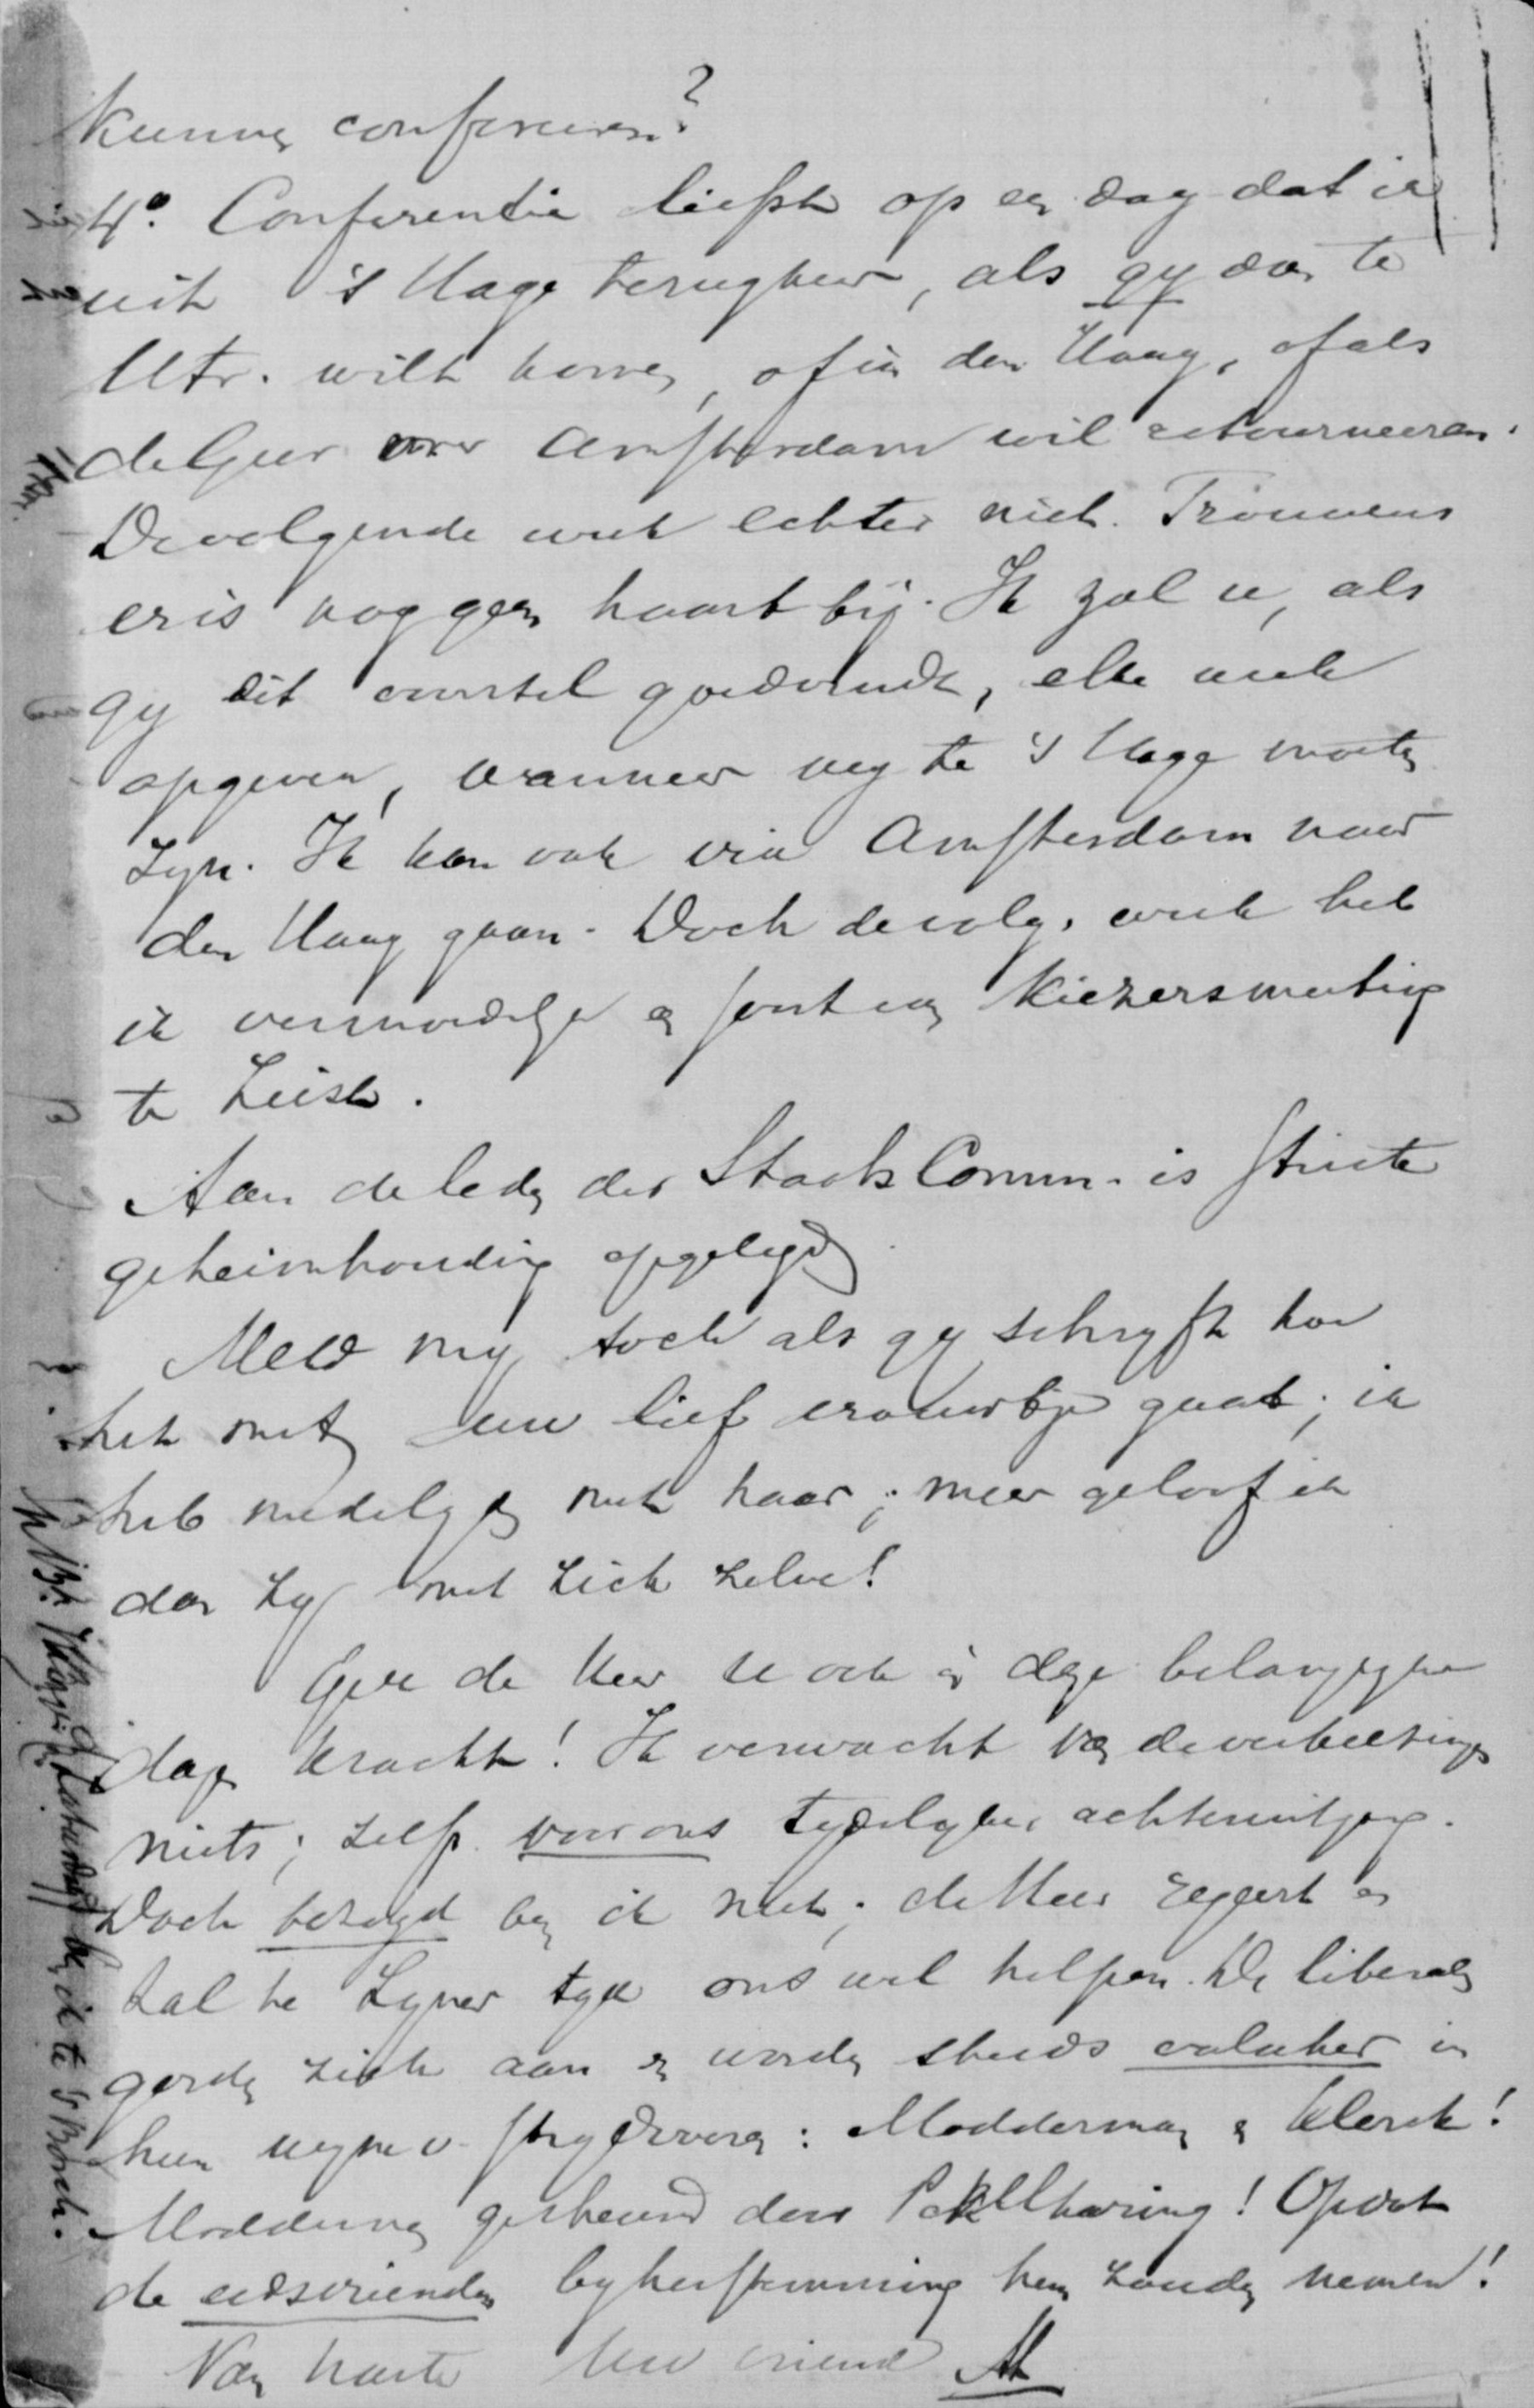 kunnen confereeren?
4º. Conferentie liefst op een dag dat ik
uit 's Hage terugkeer, als gy dan te
Utr. wilt komen, of in den Haag, of als
de Geer over Amsterdam wil retourneeren.
De volgende week echter niet. Trouwens
er is nog geen haast bij. Ik zal u, als
gy dit voorstel goedvindt, elke week
opgeven, wanneer wy te 's Hage moeten
zyn. Ik kan ook via Amsterdam naar
den Haag gaan. Doch de volg. week heb
ik vermoedelyk en Joust een Kiezersmeeting
te Zeist.
Aan de leden der StaatsComm. is stricte
geheimhouding opgelegd.
Meld my toch als gy schryft hoe
het met uw lief vrouwtje gaat; ik
heb medelyden met haar; meer geloof ik
dan zy met zich zelve!
Geve de Heer u ook in deze belangryke
dagen kracht! Ik verwacht van de verkiezingen
niets; zelfs voor ons tydelyken achteruitgang.
Doch bezorgd ben ik niet; de Heer regeert en
zal te Zyner tyd ons wel helpen. De liberalen
gorden zich aan en worden steeds zwakker in
hun wyze v. stryd voeren: Modderman en Klerck!
Modderman gesteund door Pekelharing! Opdat
de eedsvrienden by herstemming hem zouden nemen!
Van harte Uw vriend AL